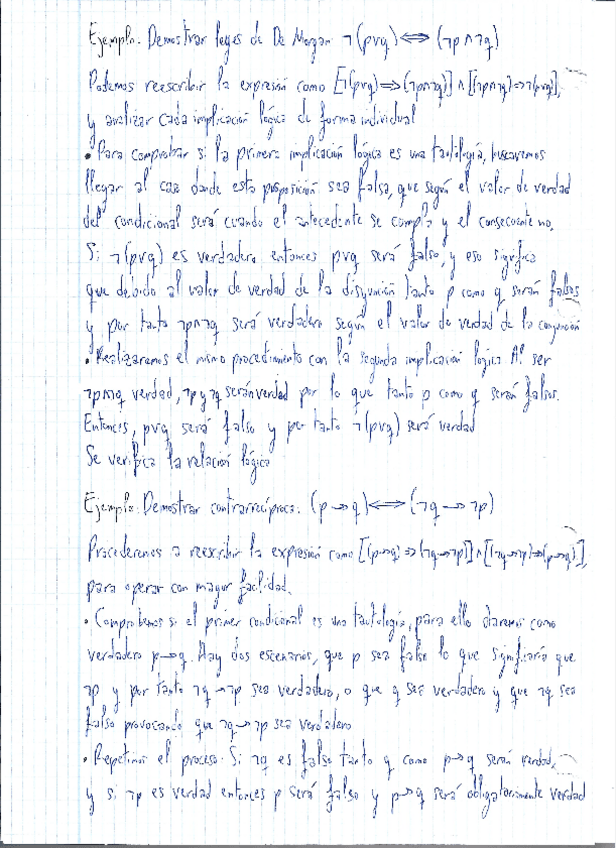 Ejemplo. Demostrar leyes de De Morgan ¬(p∨q)⟺(¬p∧¬q)
Podemos reescribir la expresión como [¬(p∨q)⟹(¬p∧¬q)]∧[(¬p∧¬q)⟹¬(p∨q)],
y analizar cada implicación lógica de forma individual
• Para comprobar si la primera implicación lógica es una tautología, buscaremos
llegar al caso donde esta proposición sea falsa, que según el valor de verdad
del condicional será cuando el antecedente se cumpla y el consecuente no.
Si ¬(p∨q) es verdadero entonces p∨q será falso, y eso significa
que debido al valor de verdad de la disyunción tanto p como q serán falsos
y por tanto ¬p∧¬q será verdadero según el valor de verdad de la conjunción
• Realizaremos el mismo procedimiento con la segunda implicación lógica Al ser
¬p∧¬q verdad, ¬p y ¬q serán verdad por lo que tanto p como q serán falsos.
Entonces, p∨q será falso y por tanto ¬(p∨q) será verdad
Se verifica la relación lógica
Ejemplo: Demostrar contrarrecíproco: (p→q)⟺(¬q→¬p)
Procederemos a reescribir la expresión como [(p→q)⟹(¬q→¬p)]∧[(¬q→¬p)⟹(p→q)],
para operar con mayor facilidad.
• Comprobemos si el primer condicional es una tautología, para ello daremos como
verdadero p→q. Hay dos escenarios, que p sea falso lo que significaría que
¬p y por tanto ¬q→¬p sea verdadero, o que q sea verdadero y que ¬q sea
falso provocando que ¬q→¬p sea verdadero
• Repetimos el proceso. Si ¬q es falso tanto q como p→q serán verdad,
y si ¬p es verdad entonces p será falso y p→q será obligatoriamente verdad